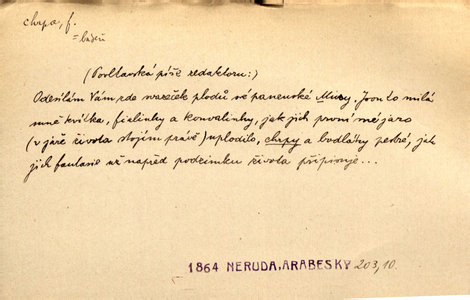 chrpa, f.
= básň
(Povltavská píše redaktoru:)
Odesílám Vám zde svazeček plodů své panenské Musy. Jsou to milá
mně kvítka, fialinky a konvalinky, jak jich první mé jaro
(v jáře života stojím právě) uplodilo, chrpy a bodláky pestré, jak
jich fantasie už napřed podzimku života připisuje...
1864 NERUDA, ARABESKY 203,10.